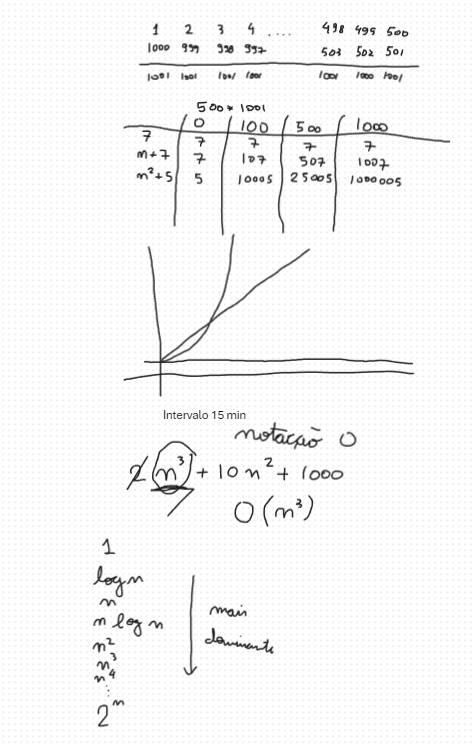 1 2 3 4 .... 498 499 500
1000 999 998 997 503 502 501
1001 1001 1001 1001 1001 1000 1001
500 * 1001
0 100 500 1000
7 7 7 7 7
n+7 7 107 507 1007
n²+5 5 10005 25005 1000005
Intervalo 15 min
notação O
2(n³) + 10n² + 1000
O(n³)
1
log n
n
n log n
n²
n³
n⁴
⋮
2ⁿ
mais
dominante